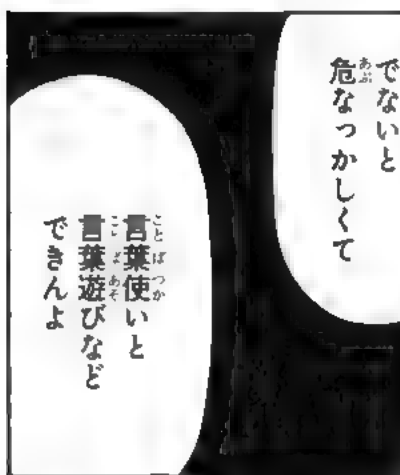 でないと
危なっかしくて
言葉使いと
言葉遊びなど
できんよ